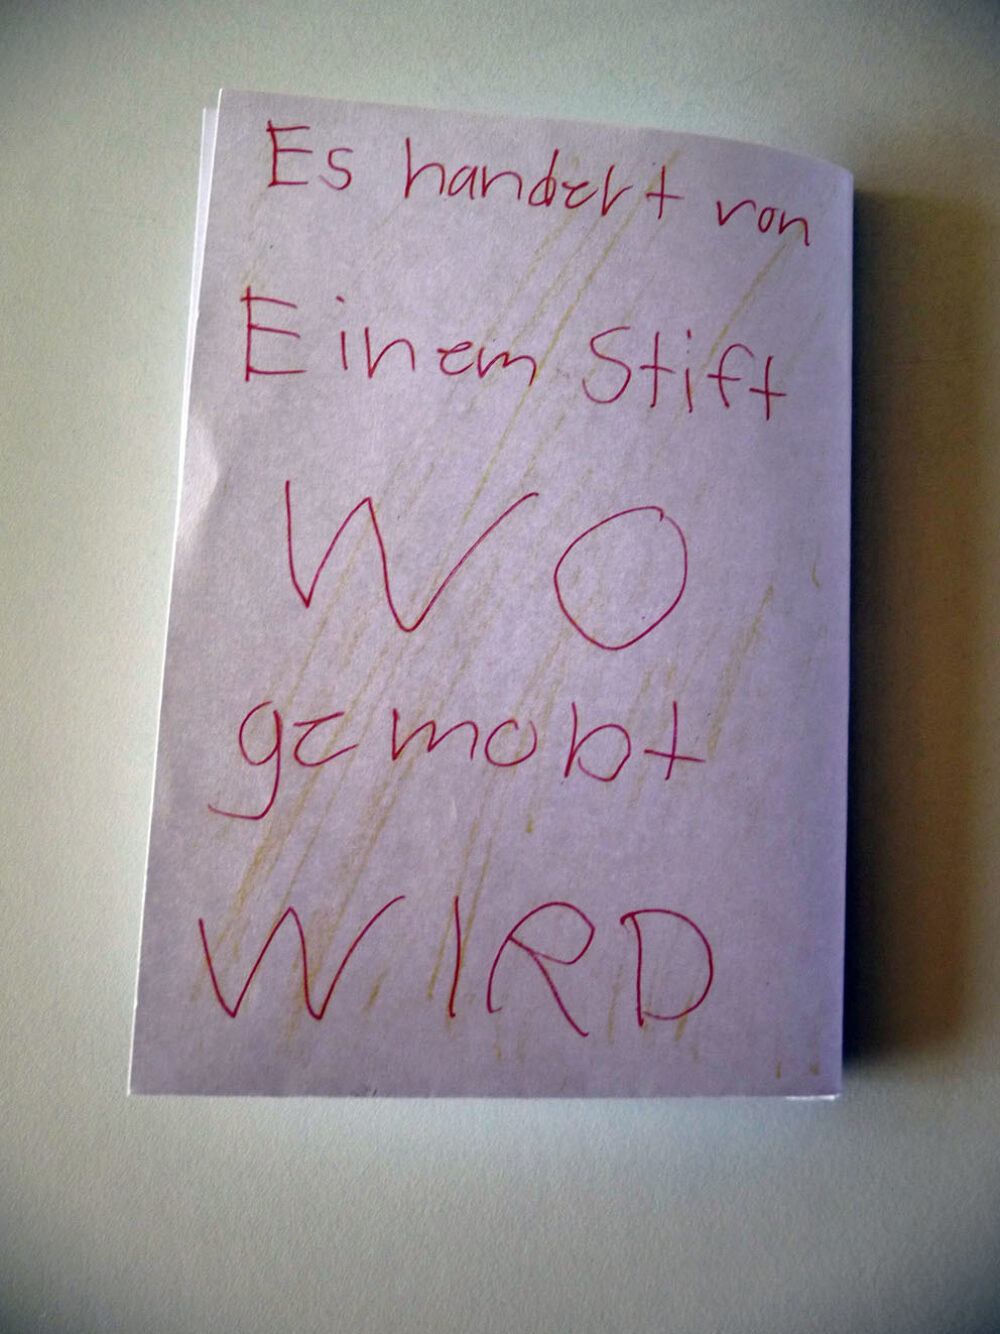 Es handelt von
Einem Stift
WO
gemobt
WIRD